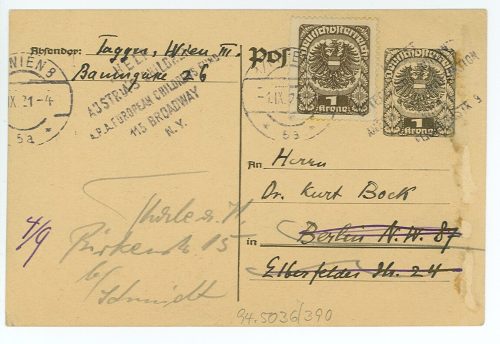 Absendgr: Taggr, Wien III.
Baumgasse 26
WIEN 8
IX 21-4
5a
HELP
AUSTRIA'S CHILDREN
A.R.A. EUROPEAN CHILDREN'S FUND
115 BROADWAY
N.Y.
Pos
Deutschösterreich
1
Krone
Deutschösterreich
1
Krone
-1.IX.2
5a
An Herrn
Dr. Kurt Bock
in Berlin N.W. 87
Elberfelder Str. 24
4/9
Halle a. S.
Birkenstr 15
b/
Schmidt
94.5036/390